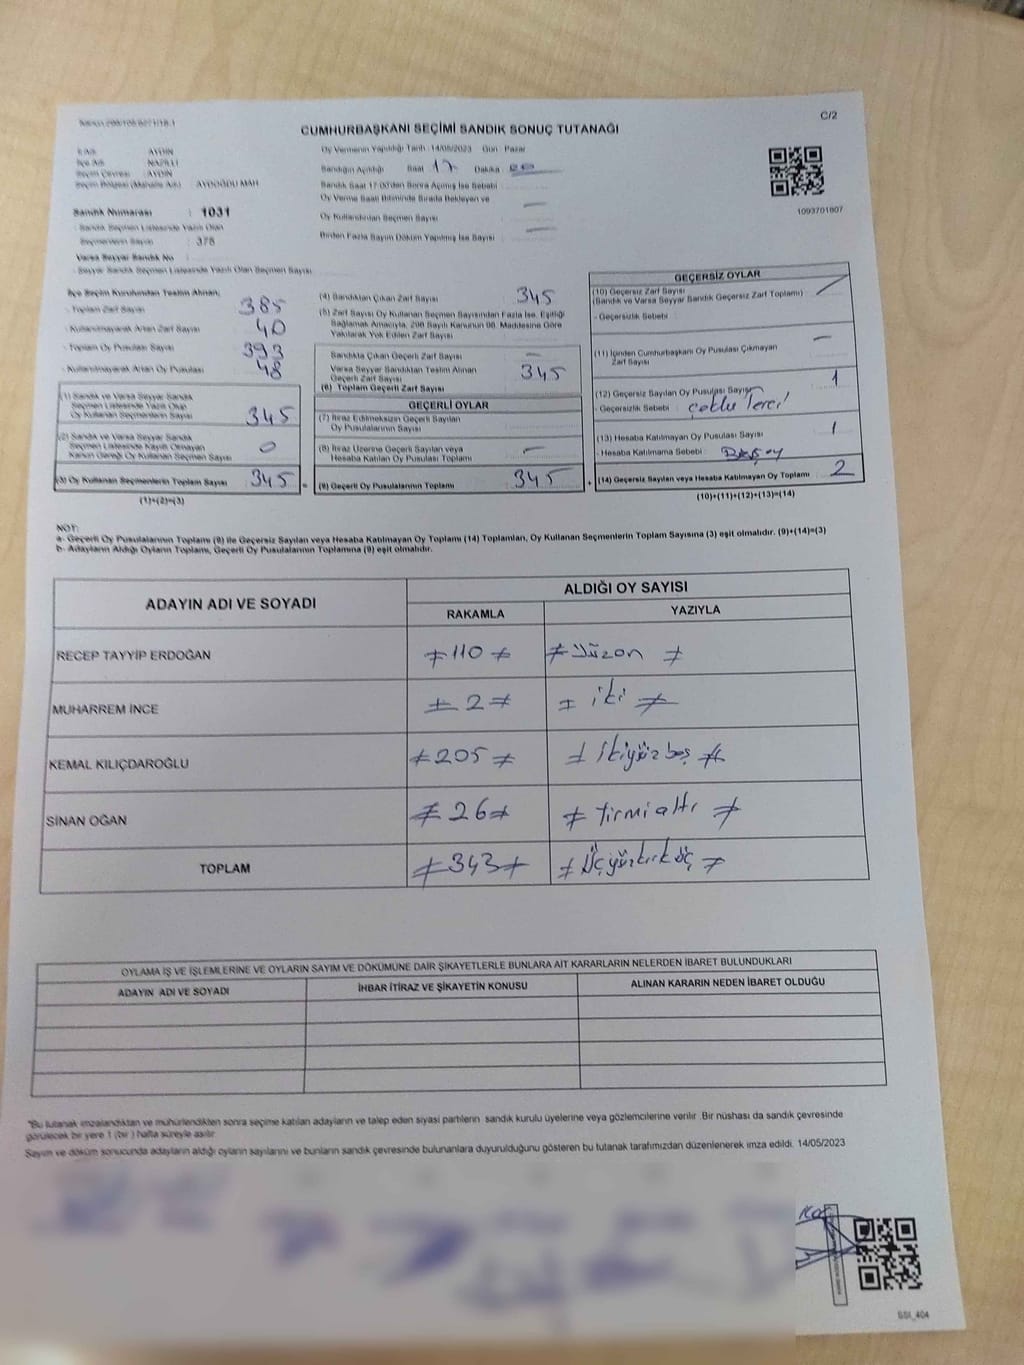 C/2
CUMHURBAŞKANI SEÇİMİ SANDIK SONUÇ TUTANAĞI
İl Adı : AYDIN
İlçe Adı : NAZİLLİ
Seçim Çevresi : AYDIN
Seçim Bölgesi (Mahalle Adı) : AYDOĞDU MAH
Sandık Numarası : 1031
Sandık Seçmen Listesinde Yazılı Olan
Seçmenlerin Sayısı : 378
Varsa Seyyar Sandık No :
Seyyar Sandık Seçmen Listesinde Yazılı Olan Seçmen Sayısı
Oy Vermenin Yapıldığı Tarih : 14/05/2023 Gün : Pazar
Sandığın Açıldığı Saat 17 Dakika : 00
Sandık Saat 17:00'den Sonra Açılmış İse Sebebi
Oy Verme Saati Bitiminde Sırada Bekleyen ve
Oy Kullandırılan Seçmen Sayısı —
Birden Fazla Sayım Döküm Yapılmış İse Sayısı —
1093701807
İlçe Seçim Kurulundan Teslim Alınan;
- Toplam Zarf Sayısı : 385
- Kullanılmayarak Artan Zarf Sayısı : 40
- Toplam Oy Pusulası Sayısı : 393
- Kullanılmayarak Artan Oy Pusulası : 48
(1) Sandık ve Varsa Seyyar Sandık
Seçmen Listesinde Yazılı Olup
Oy Kullanan Seçmenlerin Sayısı 345
(2) Sandık ve Varsa Seyyar Sandık
Seçmen Listesinde Kayıtlı Olmayan
Kanun Gereği Oy Kullanan Seçmen Sayısı 0
(3) Oy Kullanan Seçmenlerin Toplam Sayısı 345 =
(1)+(2)=(3)
(4) Sandıktan Çıkan Zarf Sayısı 345
(5) Zarf Sayısı Oy Kullanan Seçmen Sayısından Fazla İse, Eşitliği
Sağlamak Amacıyla, 298 Sayılı Kanunun 98. Maddesine Göre
Yakılarak Yok Edilen Zarf Sayısı
Sandıkta Çıkan Geçerli Zarf Sayısı —
Varsa Seyyar Sandıktan Teslim Alınan
Geçerli Zarf Sayısı
(6) Toplam Geçerli Zarf Sayısı 345
GEÇERLİ OYLAR
(7) İtiraz Edilmeksizin Geçerli Sayılan
Oy Pusulasının Sayısı
(8) İtiraz Üzerine Geçerli Sayılan veya
Hesaba Katılan Oy Pusulası Toplamı —
(9) Geçerli Oy Pusulalarının Toplamı 345 +
GEÇERSİZ OYLAR
(10) Geçersiz Zarf Sayısı
(Sandık ve Varsa Seyyar Sandık Geçersiz Zarf Toplamı)
- Geçersizlik Sebebi :
(11) İçinden Cumhurbaşkanı Oy Pusulası Çıkmayan
Zarf Sayısı —
(12) Geçersiz Sayılan Oy Pusulası Sayısı 1
- Geçersizlik Sebebi : Çoklu Terci
(13) Hesaba Katılmayan Oy Pusulası Sayısı 1
- Hesaba Katılmama Sebebi : Boş oy
(14) Geçersiz Sayılan veya Hesaba Katılmayan Oy Toplamı 2
(10)+(11)+(12)+(13)=(14)
NOT:
a- Geçerli Oy Pusulalarının Toplamı (9) ile Geçersiz Sayılan veya Hesaba Katılmayan Oy Toplamı (14) Toplamları, Oy Kullanan Seçmenlerin Toplam Sayısına (3) eşit olmalıdır. (9)+(14)=(3)
b- Adayların Aldığı Oyların Toplamı, Geçerli Oy Pusulalarının Toplamına (9) eşit olmalıdır.
ADAYIN ADI VE SOYADI
ALDIĞI OY SAYISI
RAKAMLA YAZIYLA
RECEP TAYYİP ERDOĞAN ≠110≠ ≠Yüzon≠
MUHARREM İNCE ≠2≠ ≠iki≠
KEMAL KILIÇDAROĞLU ≠205≠ ≠İkiyüzbeş≠
SİNAN OĞAN ≠26≠ ≠Yirmialtı≠
TOPLAM ≠343≠ ≠Üçyüzkırküç≠
OYLAMA İŞ VE İŞLEMLERİNE VE OYLARIN SAYIM VE DÖKÜMÜNE DAİR ŞİKAYETLERLE BUNLARA AİT KARARLARIN NELERDEN İBARET BULUNDUKLARI
ADAYIN ADI VE SOYADI İHBAR İTİRAZ VE ŞİKAYETİN KONUSU ALINAN KARARIN NEDEN İBARET OLDUĞU
*Bu tutanak imzalandıktan ve mühürlendikten sonra seçime katılan adayların ve talep eden siyasi partilerin sandık kurulu üyelerine veya gözlemcilerine verilir. Bir nüshası da sandık çevresinde
görülecek bir yere 1 (bir ) hafta süreyle asılır.
Sayım ve döküm sonucunda adayların aldığı oyların sayılarını ve bunların sandık çevresinde bulunanlara duyurulduğunu gösteren bu tutanak tarafımızdan düzenlenerek imza edildi. 14/05/2023
SSI_404